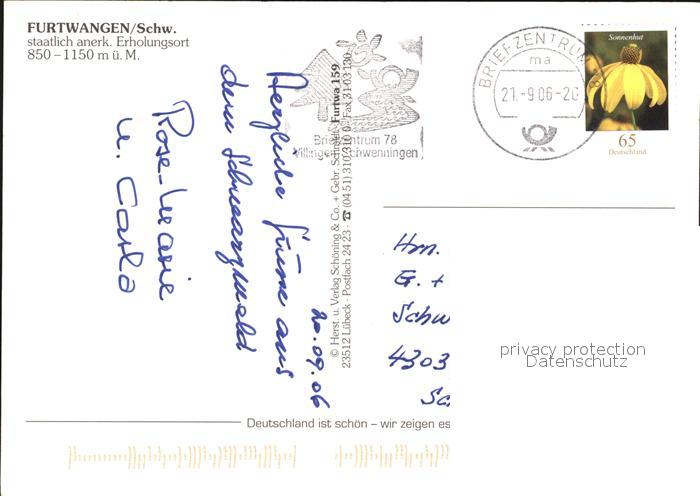 FURTWANGEN/Schw.
staatlich anerk. Erholungsort
850 – 1150 m ü. M.
Briefzentrum 78
Villingen-Schwenningen
BRIEFZENTRUM
ma
21.-9.06-20
Sonnenhut
65
Deutschland
20.09.06
Herzliche Grüsse aus
dem Schwarzwald
Rose-Marie
u. Carla
© Herst. u. Verlag Schöning & Co. + Gebr. Schmidt Furtwa 159
23512 Lübeck · Postfach 24 23 · ☎ (04 51) 310 310 Fax 31 03 130
Hrn.
G. +
Schw
4303
Sc
privacy protection
Datenschutz
Deutschland ist schön – wir zeigen es